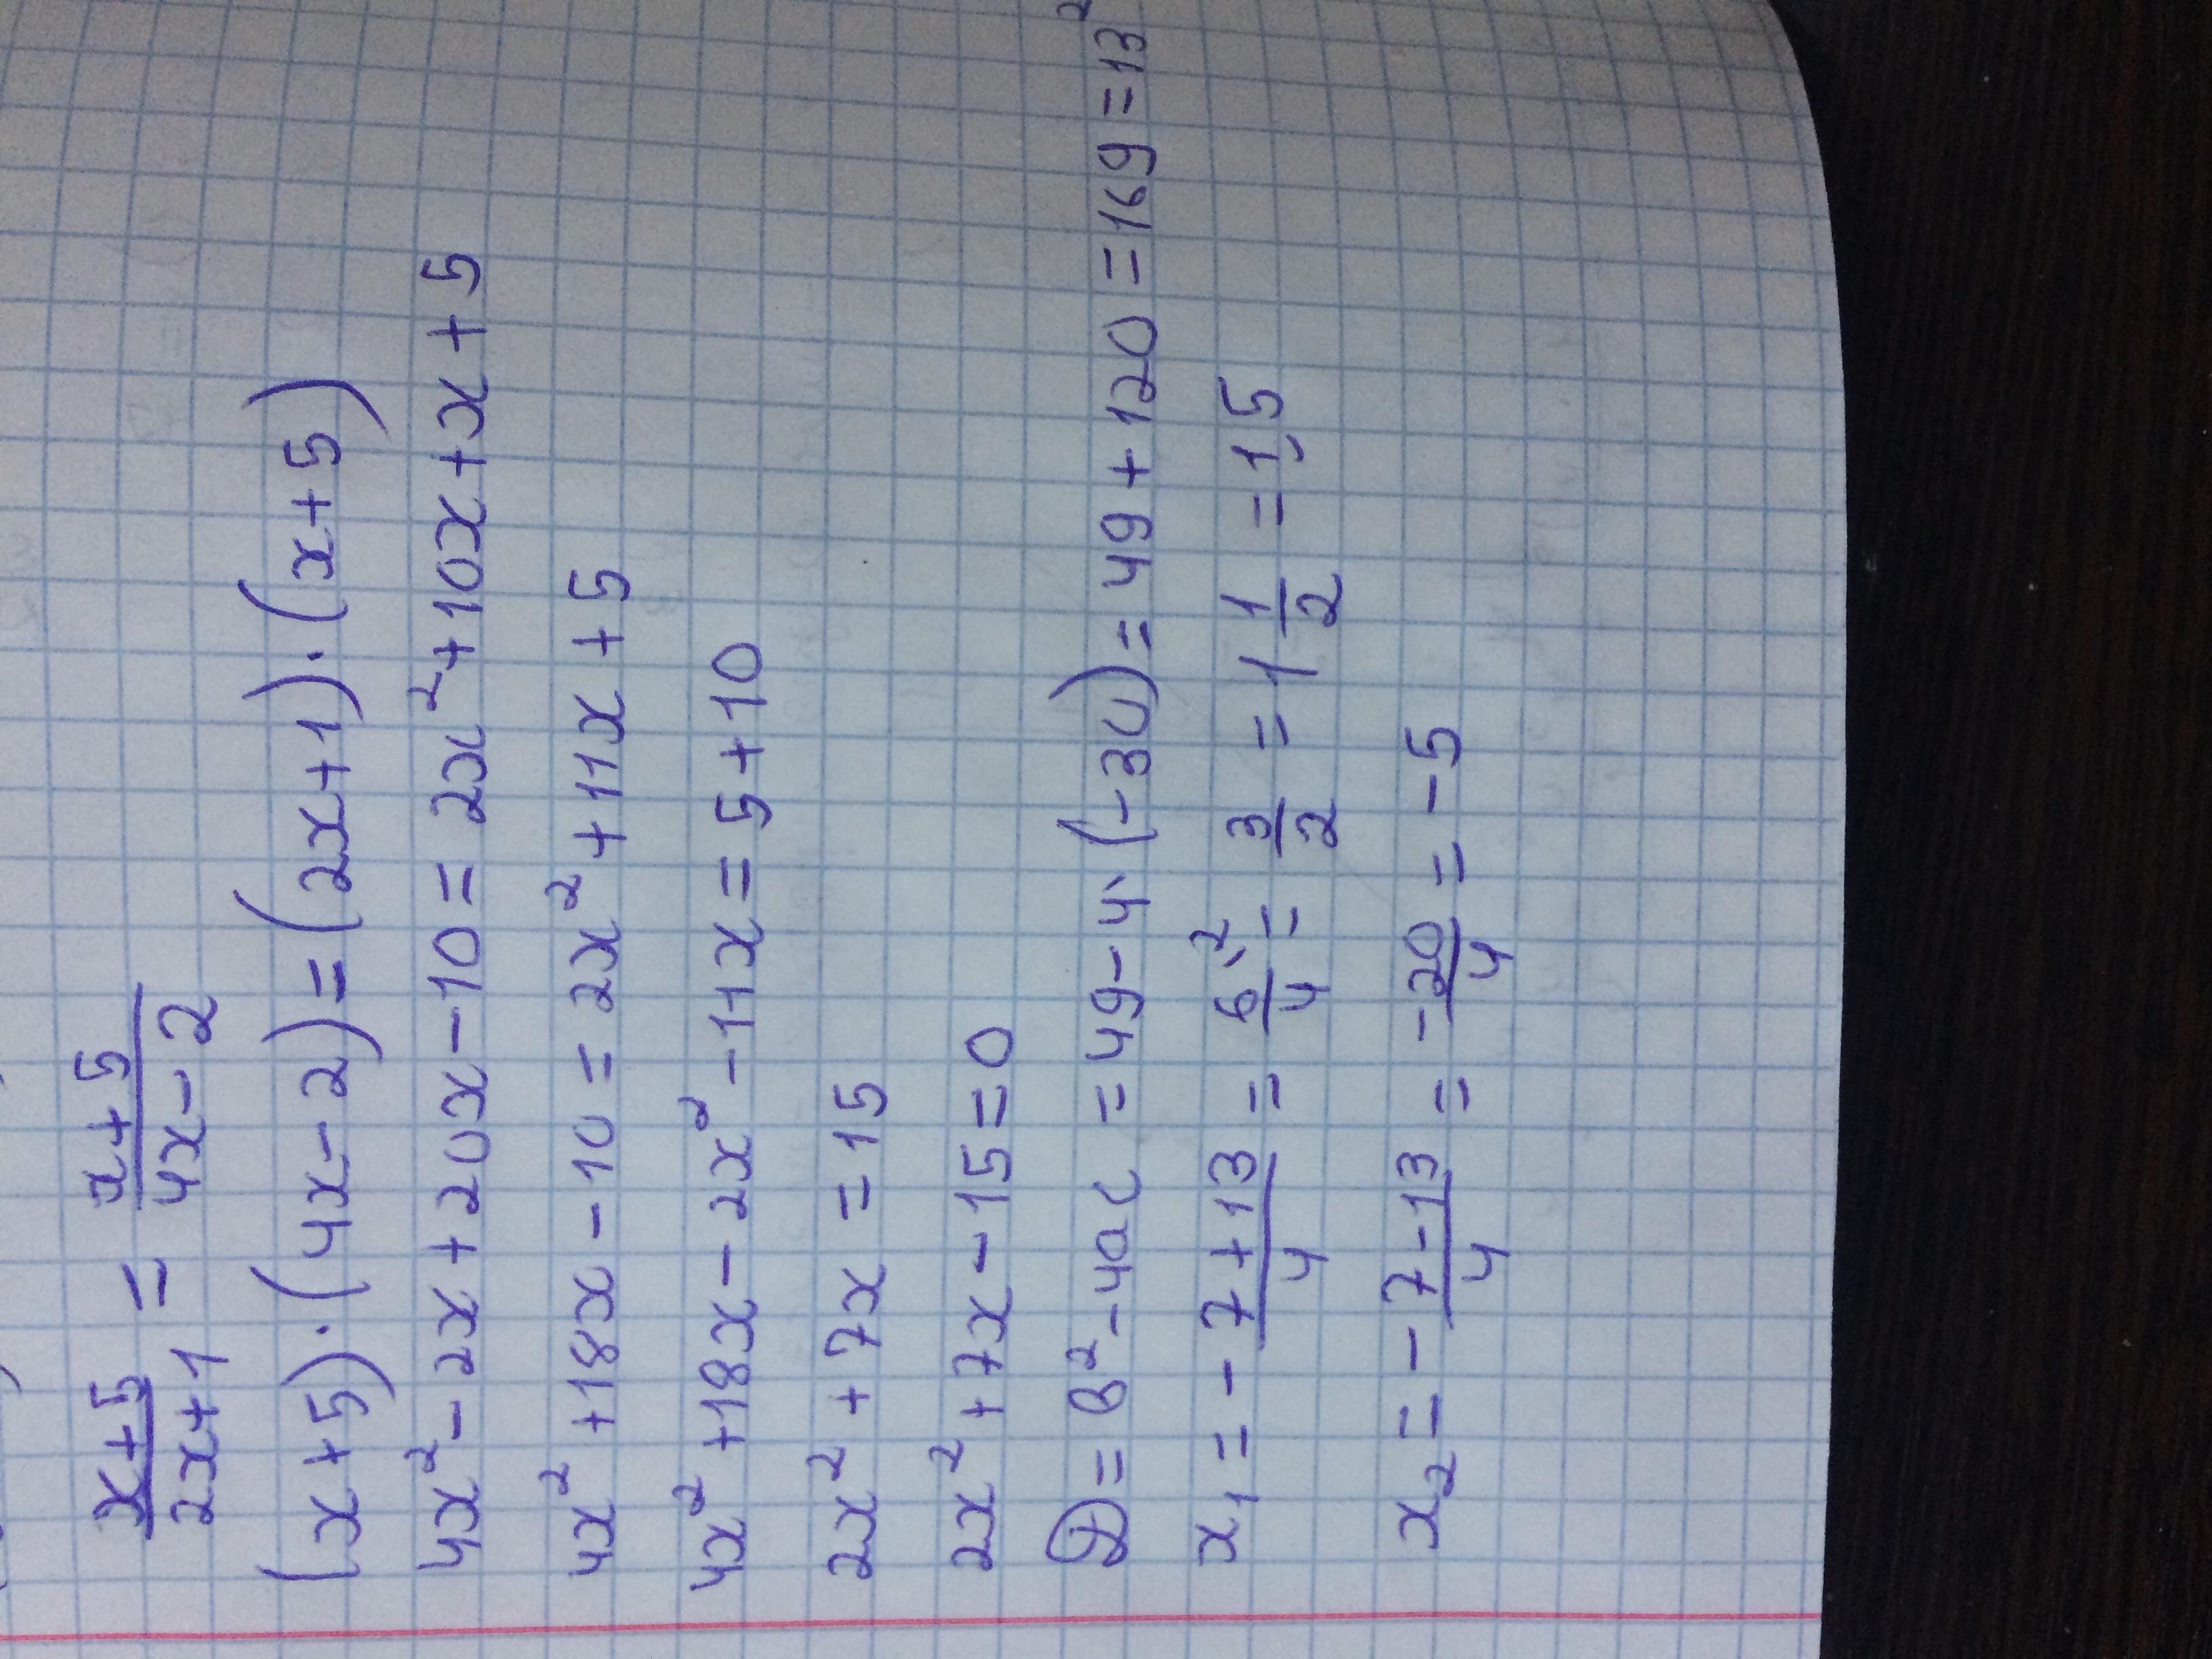 x+5/2x+1 = x+5/4x-2
(x+5)·(4x-2)=(2x+1)·(x+5)
4x²-2x+20x-10=2x²+10x+x+5
4x²+18x-10=2x²+11x+5
4x²+18x-2x²-11x=5+10
2x²+7x=15
2x²+7x-15=0
D=в²-4ac=49-4·(-30)=49+120=169=13²
x₁=-7+13/4=6\2/4=3/2=1 1/2=1,5
x₂=-7-13/4=-20/4=-5